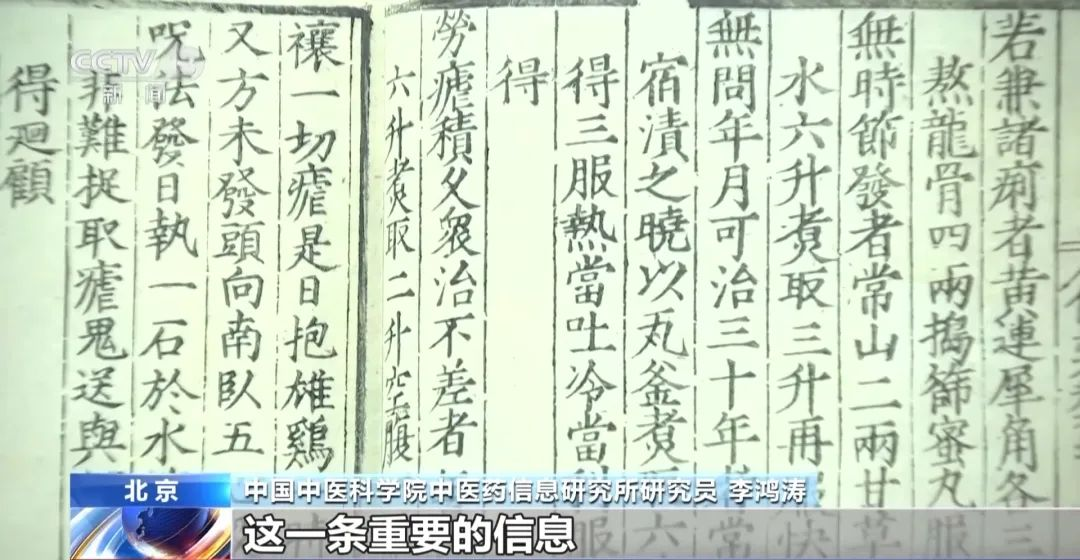 CCTV
新闻
若兼諸痢者黃連犀角各三
熬龍骨四兩搗篩蜜丸服
無時節發者常山二兩甘草
水六升煑取三升再快
無問年月可治三十年常
宿漬之曉以丸釜煑六
得三服熱當吐冷當利服
得
勞瘧積久衆治不差者
六升煑取二升空腹
禳一切瘧是日抱雄鷄
又方未發頭向南臥五
呪法發日執一石於水
非難捉取瘧鬼送與
得廻顧
北京
中国中医科学院中医药信息研究所研究员 李鸿涛
这一条重要的信息